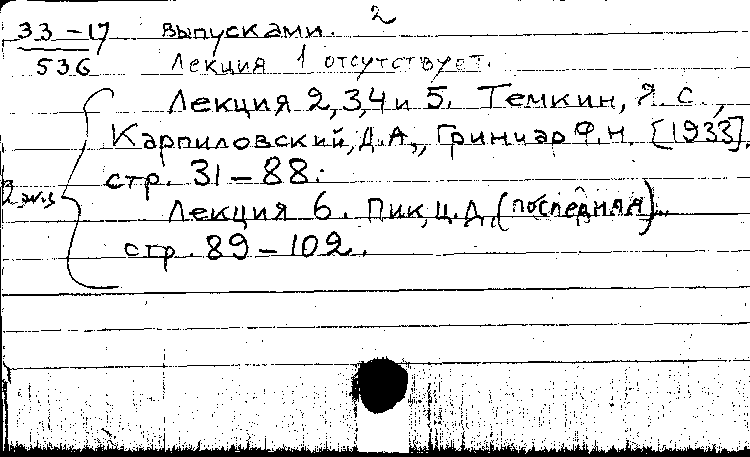 2
33-17 выпусками.
536 Лекция 1 отсутствует.
Лекция 2, 3, 4 и 5. Темкин, Я. С.,
Карпиловский, Д. А., Гринчар Ф. Н. [1933].
стр. 31 - 88.
2 экз
Лекция 6. Пик, Ц. Д. (последняя).
стр. 89 - 102.